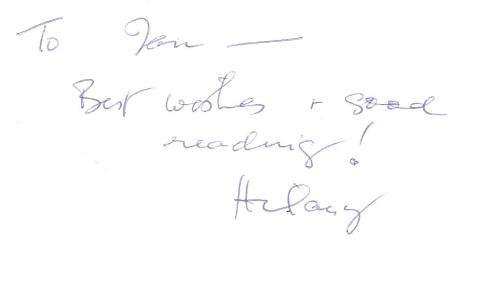 To Jen —
Best wishes + good
reading!
Hilary